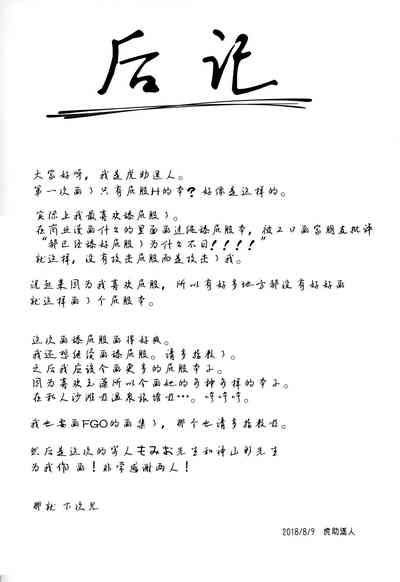 后记
大家好呀，我是虎助遥人。
第一次画了只有屁股H的本？好像是这样的。
实际上我最喜欢臻屁股了。
在商业漫画什么的里面画过臻屁股本，被工口画家朋友批评
“都已经臻好屁股了为什么不日！！！！”
就这样，没有攻击屁股而是攻击了我。
说起来因为我喜欢屁股，所以有好多地方都没有好好画
就这样画了个屁股本。
这次画臻屁股画得好爽。
我还想继续画臻屁股。请多指教了。
之后我应该会画更多的屁股本子。
因为喜欢玉藻所以会画她的各种各样的本子。
在私人沙滩啦温泉旅馆啦…。哼哼哼。
我也要画FGO的画集了，那个也请多指教啦。
然后是这次的客人もみお先生和诗山彩先生
为我作画！非常感谢两人！
那就 下次见
2018/8/9 虎助遥人